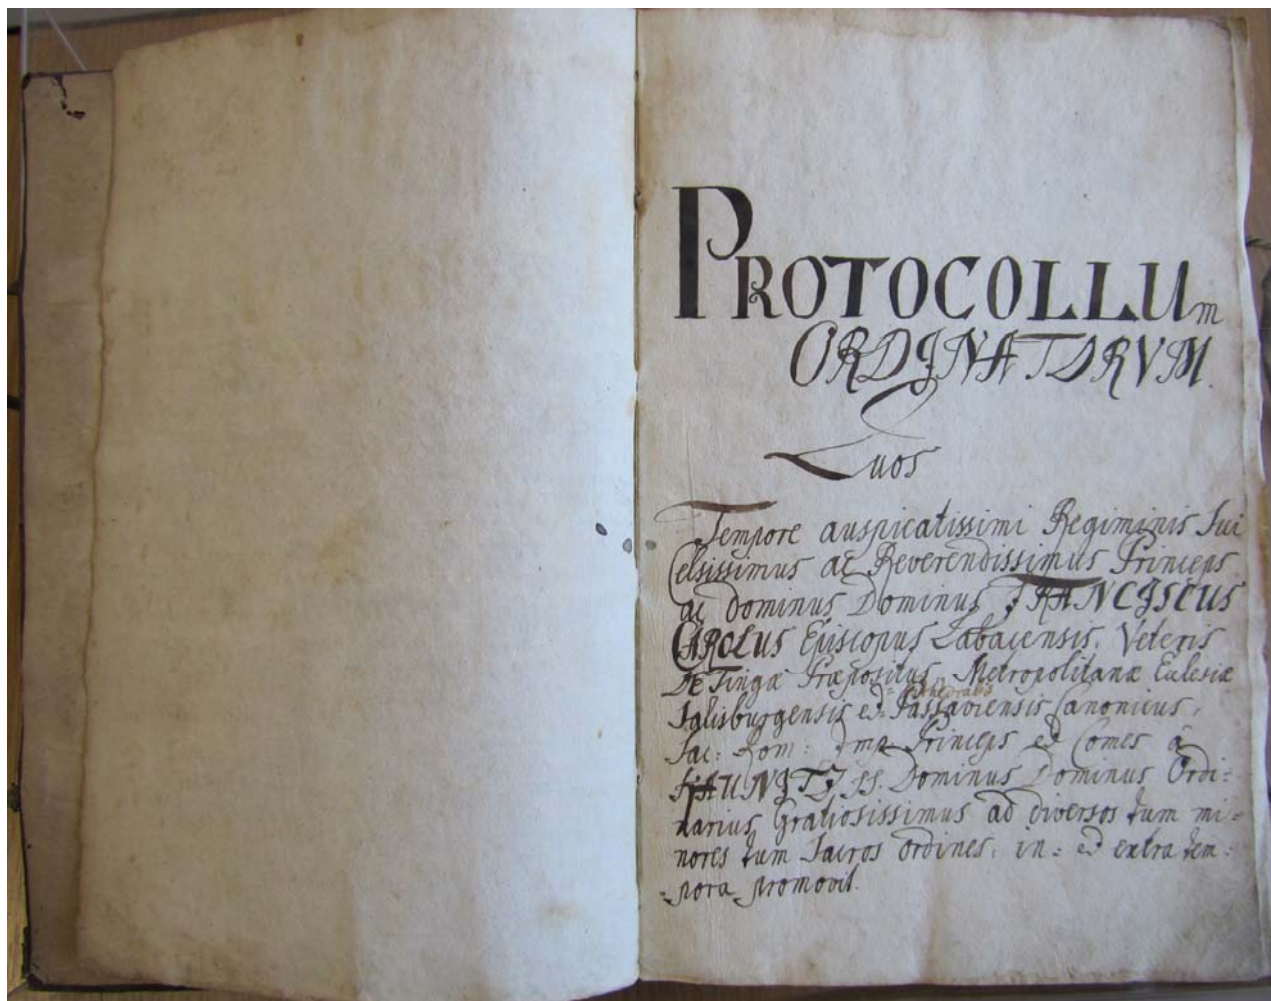 PROTOCOLLUm
ORDJNATORVM.
Quos
Tempore auspicatissimi Regiminis sui
Celsissimus ac Reverendissimus Princeps
ac Dominus Dominus FRANCJSCUS
CAROLUS Episcopus Labacensis, Veteris
De Tingæ Præpositus, Metropolitanæ Eclesiæ
Salisburgensis et Cathedralis Passaviensis Canonicus,
Sac: Rom: Imp Princeps et Comes à
KAUNJTZ JSS. Dominus Dominus Ordi=
narius Gratiosissimus ad diversos tum mi=
nores tum Sacros ordines, in= et extra tem=
=pora promovit.